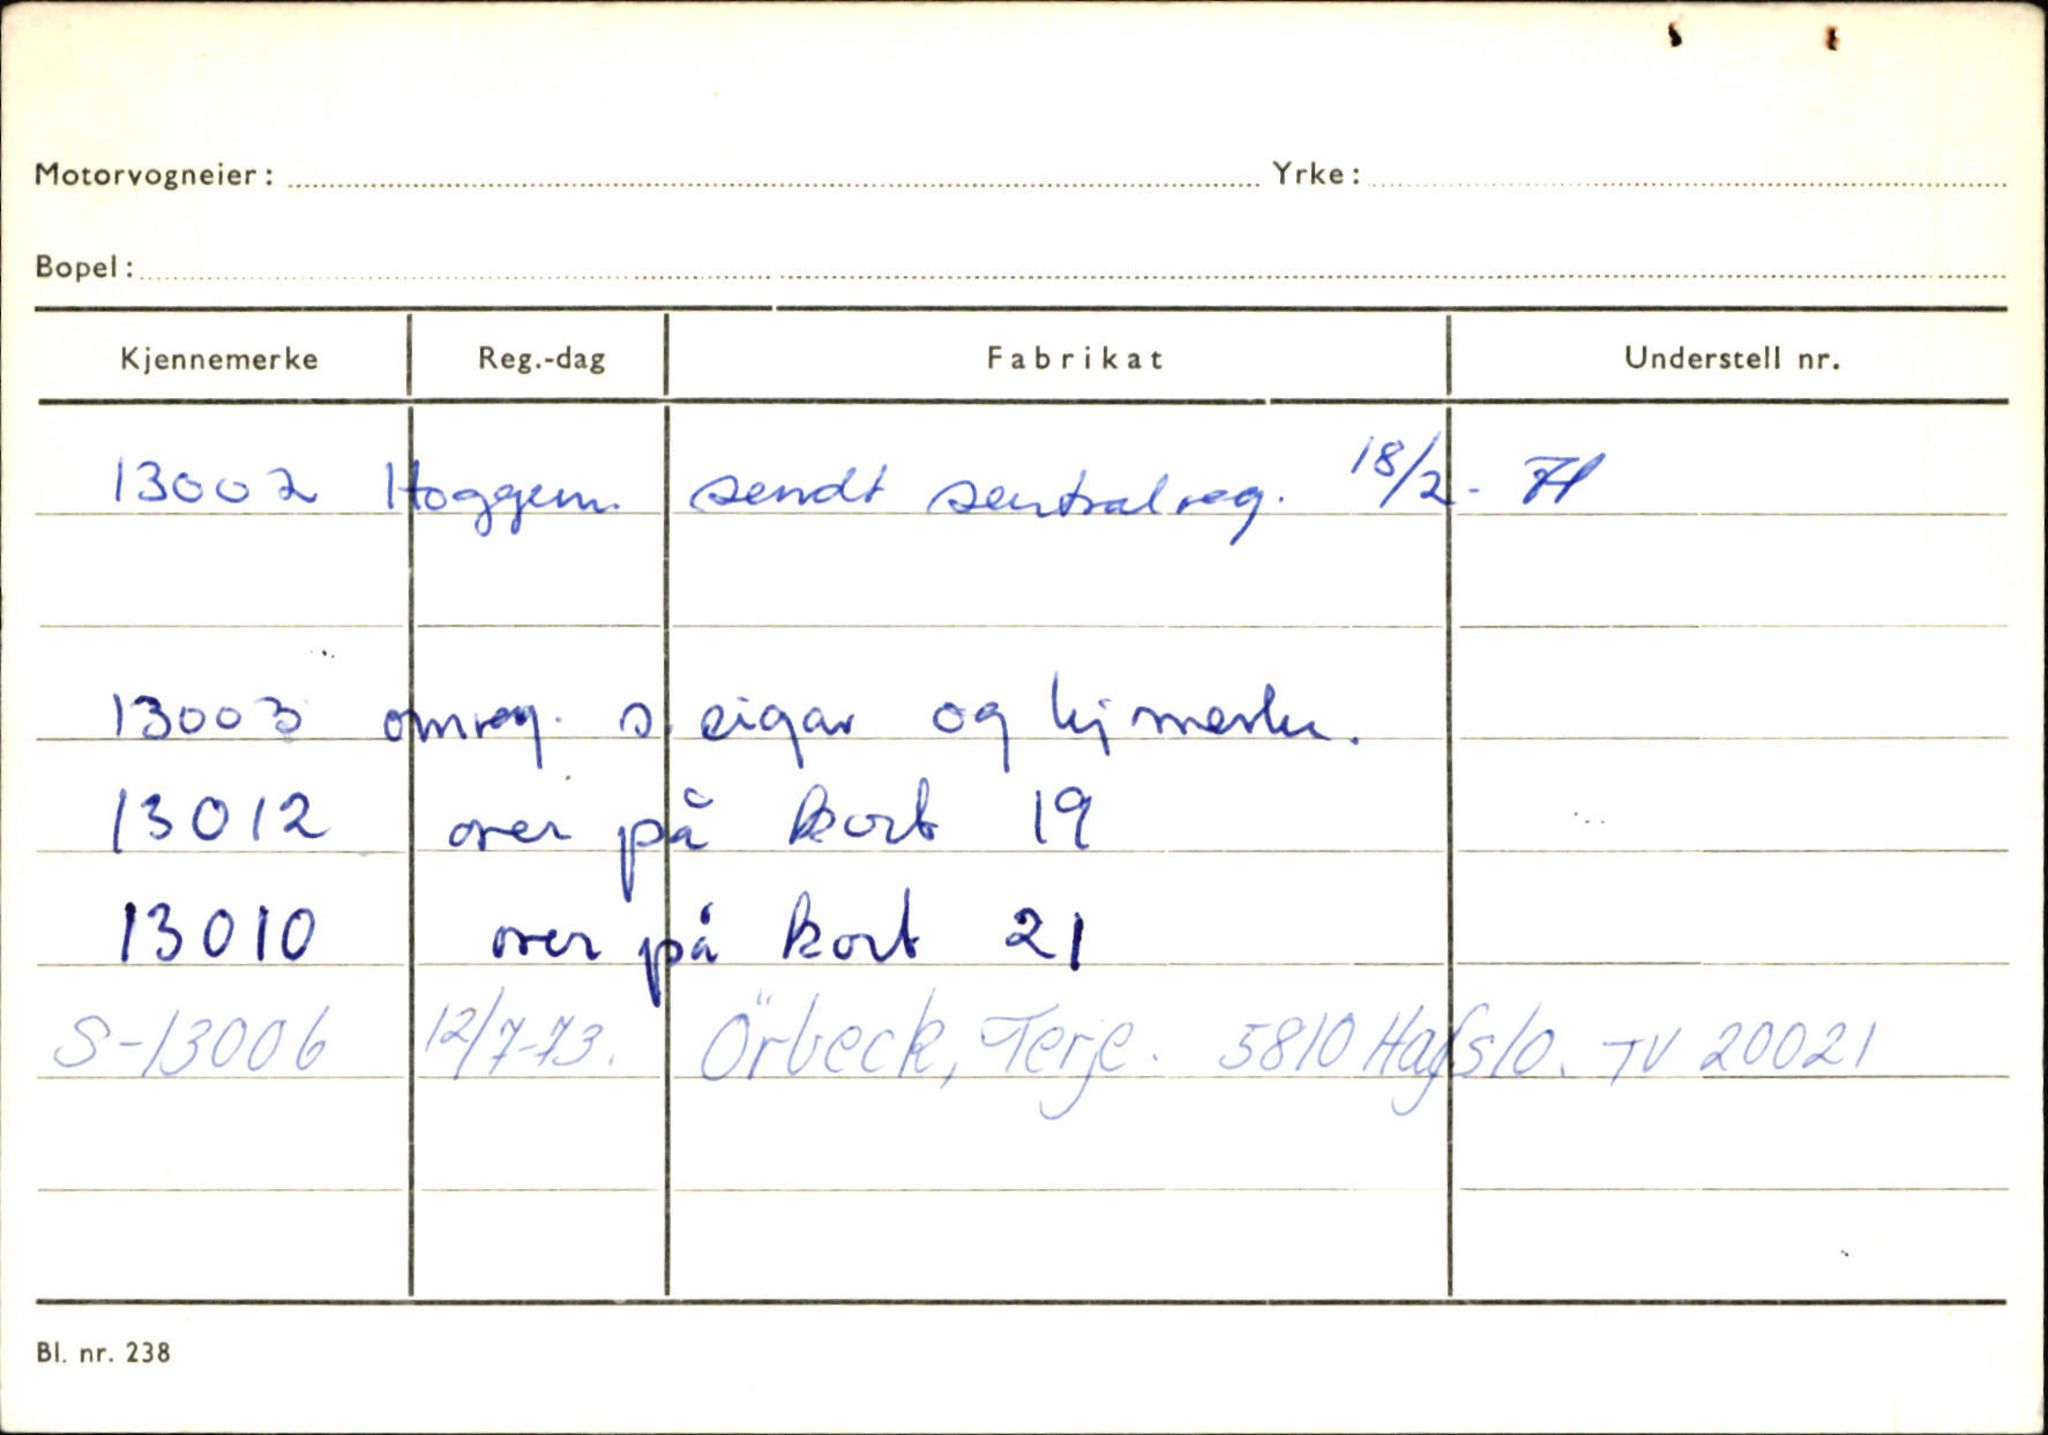 Motorvogneier: Yrke:
Bopel:
Kjennemerke Reg.-dag Fabrikat Understell nr.
13002 Hoggem. sendt sentralreg. 18/2 - 71
13003 omreg. s. eigar og kjmerke.
13012 over på kort 19
13010 over på kort 21
S-13006 12/7-73. Örbeck, Terje. 5810 Hafslo. TV 20021
Bl. nr. 238